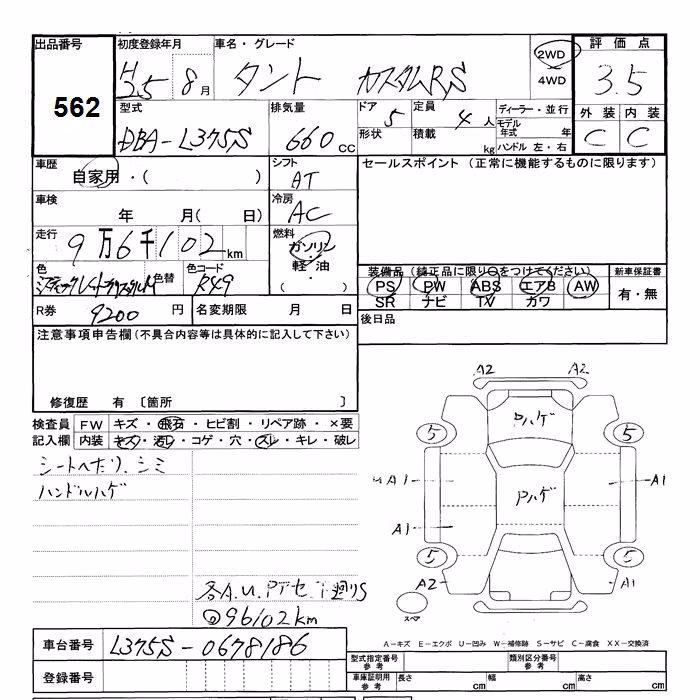 出品番号 562
初度登録年月 H25 8月
車名・グレード タント カスタムRS
2WD
4WD
評価点 3.5
外装 内装
C C
型式 DBA-L375S
排気量 660 CC
ドア 5 定員 4人
形状 積載 kg
ディーラー・並行
モデル年式 年
ハンドル 左・右
車歴 自家用・( )
シフト AT
セールスポイント (正常に機能するものに限ります)
車検 年 月( 日)
冷房 AC
走行 9万6千102km
燃料 ガソリン
軽油
・( )
色 色替 色コード R49
装備品(純正品に限り○をつけてください) 新車保証書
PS PW ABS エアB AW 有・無
SR ナビ TV カワ
R券 9200円 名変期限 月 日
後日品
注意事項申告欄(不具合内容等は具体的に記入して下さい)
修復歴 有 〔箇所 〕
検査員 FW キズ・飛石・ヒビ割・リペア跡・×要
記入欄 内装 キズ・汚レ・コゲ・穴・スレ・キレ・破レ
シートへたり、シミ
ハンドルハゲ
各A.U.Pアセ.下廻りS
@96102km
A2 A2
Pハゲ
5 5
A1 Pハゲ A1
A1
5 5
A2 A1
スペア
車台番号 L375S-0678186
A-キズ E-エクボ U-凹み W-補修跡 S-サビ C-腐食 XX-交換済
登録番号
型式指定番号 参考 類別区分番号 参考
車庫証明用 参考 長さ cm 幅 cm 高さ cm